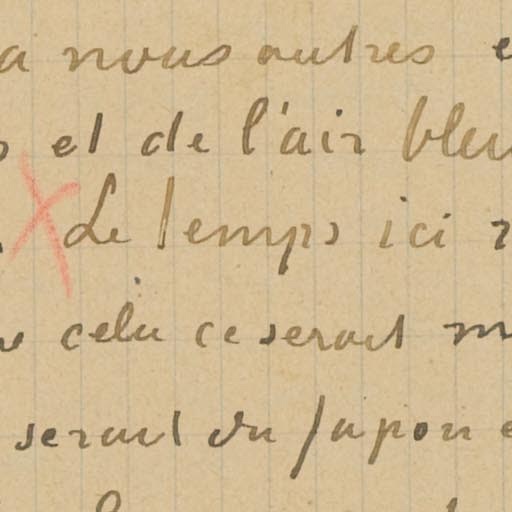 a nous autres
et de l'air bleu
Le temps ici
cela ce serait
serait du Japon